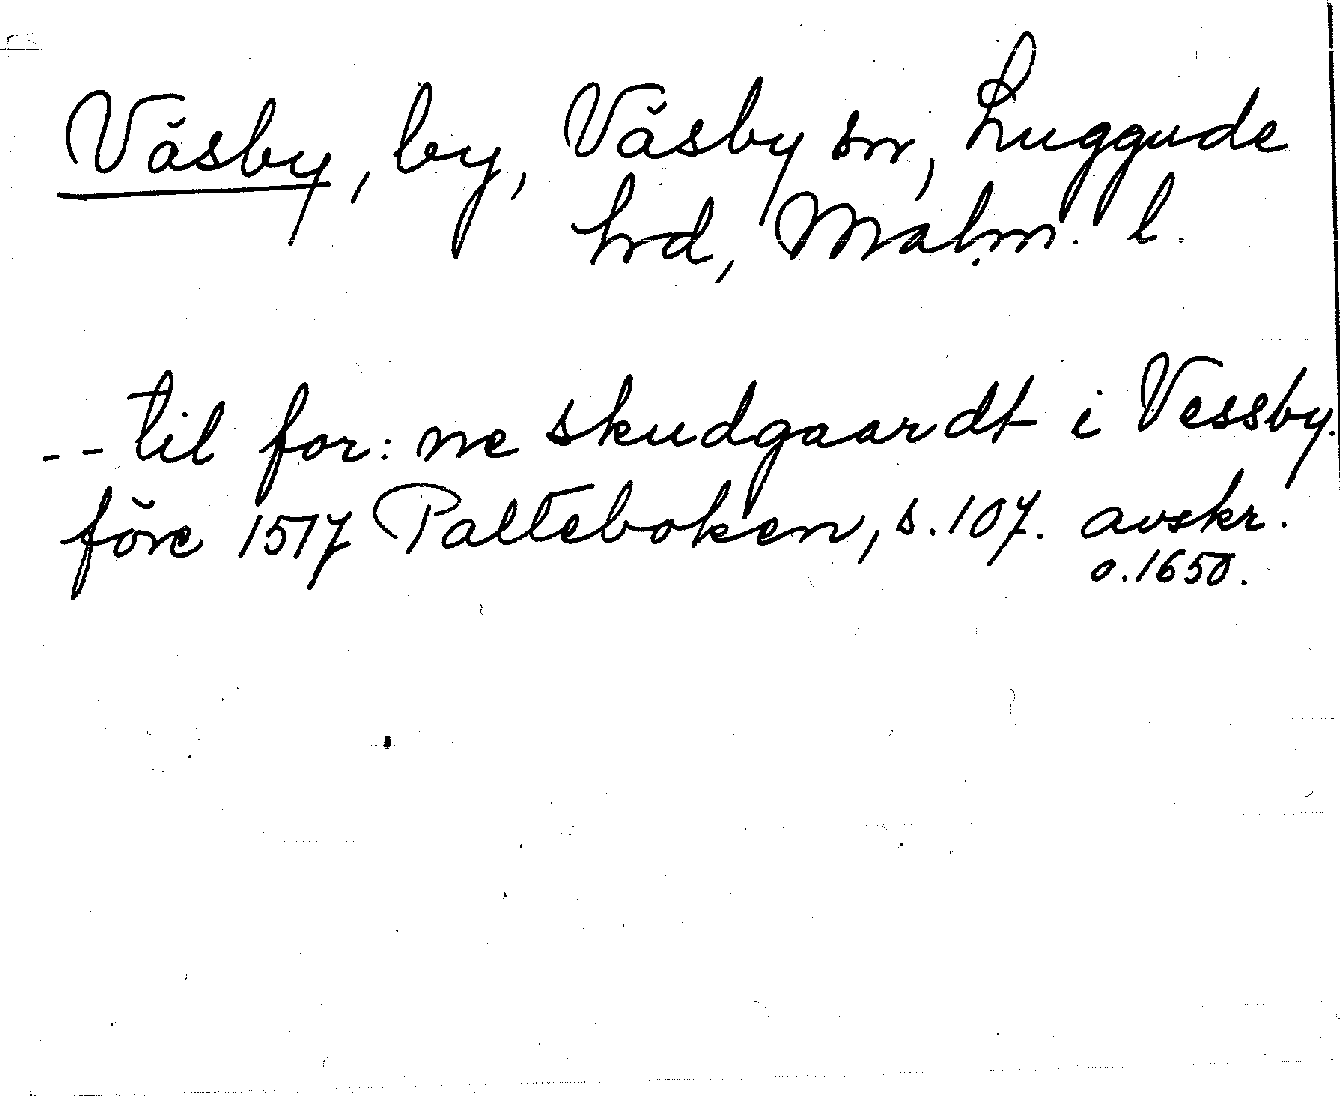 Väsby, by, Väsby sn, Luggude
hrd, Malm. l.
-- til for: ne skudgaardt i Vessby.
före 1517 Palteboken, s. 107. avskr.
o. 1650.